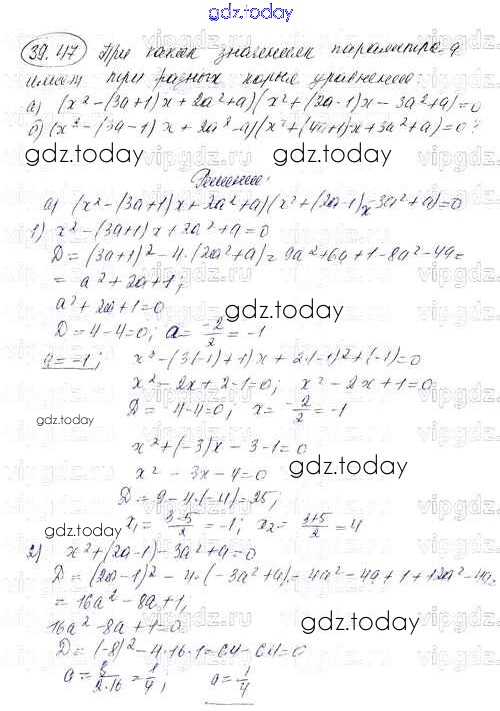 gdz.today
39.47 При каких значениях параметра a
имеет три разных корня уравнение:
а) (x²-(3a+1)x+2a²+a)(x²+(2a-1)x-3a²+a)=0
б) (x²-(3a-1)x+2a²-a)(x²+(4a+1)x+3a²+a)=0?
gdz.today gdz.today
Решение:
а) (x²-(3a+1)x+2a²+a)(x²+(2a-1)x-3a²+a)=0
1) x²-(3a+1)x+2a²+a=0
D=(3a+1)²-4·(2a²+a)=9a²+6a+1-8a²-4a=
= a²+2a+1;
a²+2a+1=0
gdz.today
D=4-4=0; a=-2/2=-1
a=-1; x²-(3(-1)+1)x+2·(-1)²+(-1)=0
x²-2x+2-1=0; x²-2x+1=0
D= 4-4=0; x=-2/2=-1
gdz.today
x²+(-3)x-3-1=0
x²-3x-4=0
gdz.today
D=9-4·(-4)=25;
x₁=3-5/2=-1; x₂=3+5/2=4
gdz.today
2) x²+(2a-1)-3a²+a=0
D=(2a-1)²-4·(-3a²+a)=4a²-4a+1+12a²-4a=
=16a²-8a+1;
16a²-8a+1=0
gdz.today
D=(-8)²-4·16·1=64-64=0
a=8/2·16=1/4; a=1/4
gdz.today